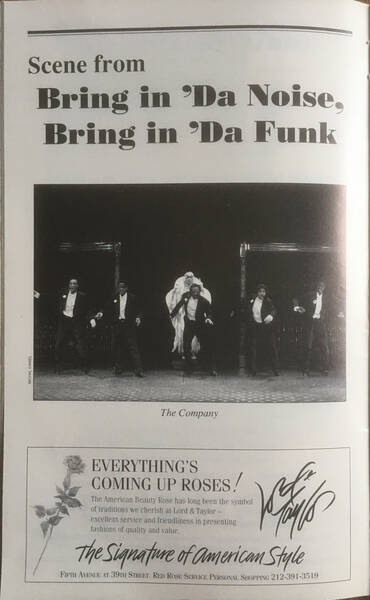 Scene from
Bring in 'Da Noise,
Bring in 'Da Funk
The Company
EVERYTHING'S
COMING UP ROSES!
The American Beauty Rose has long been the symbol
of traditions we cherish at Lord & Taylor –
excellent service and friendliness in presenting
fashions of quality and value.
Lord & Taylor
The Signature of American Style
FIFTH AVENUE AT 39TH STREET. RED ROSE SERVICE PERSONAL SHOPPING 212-391-3519